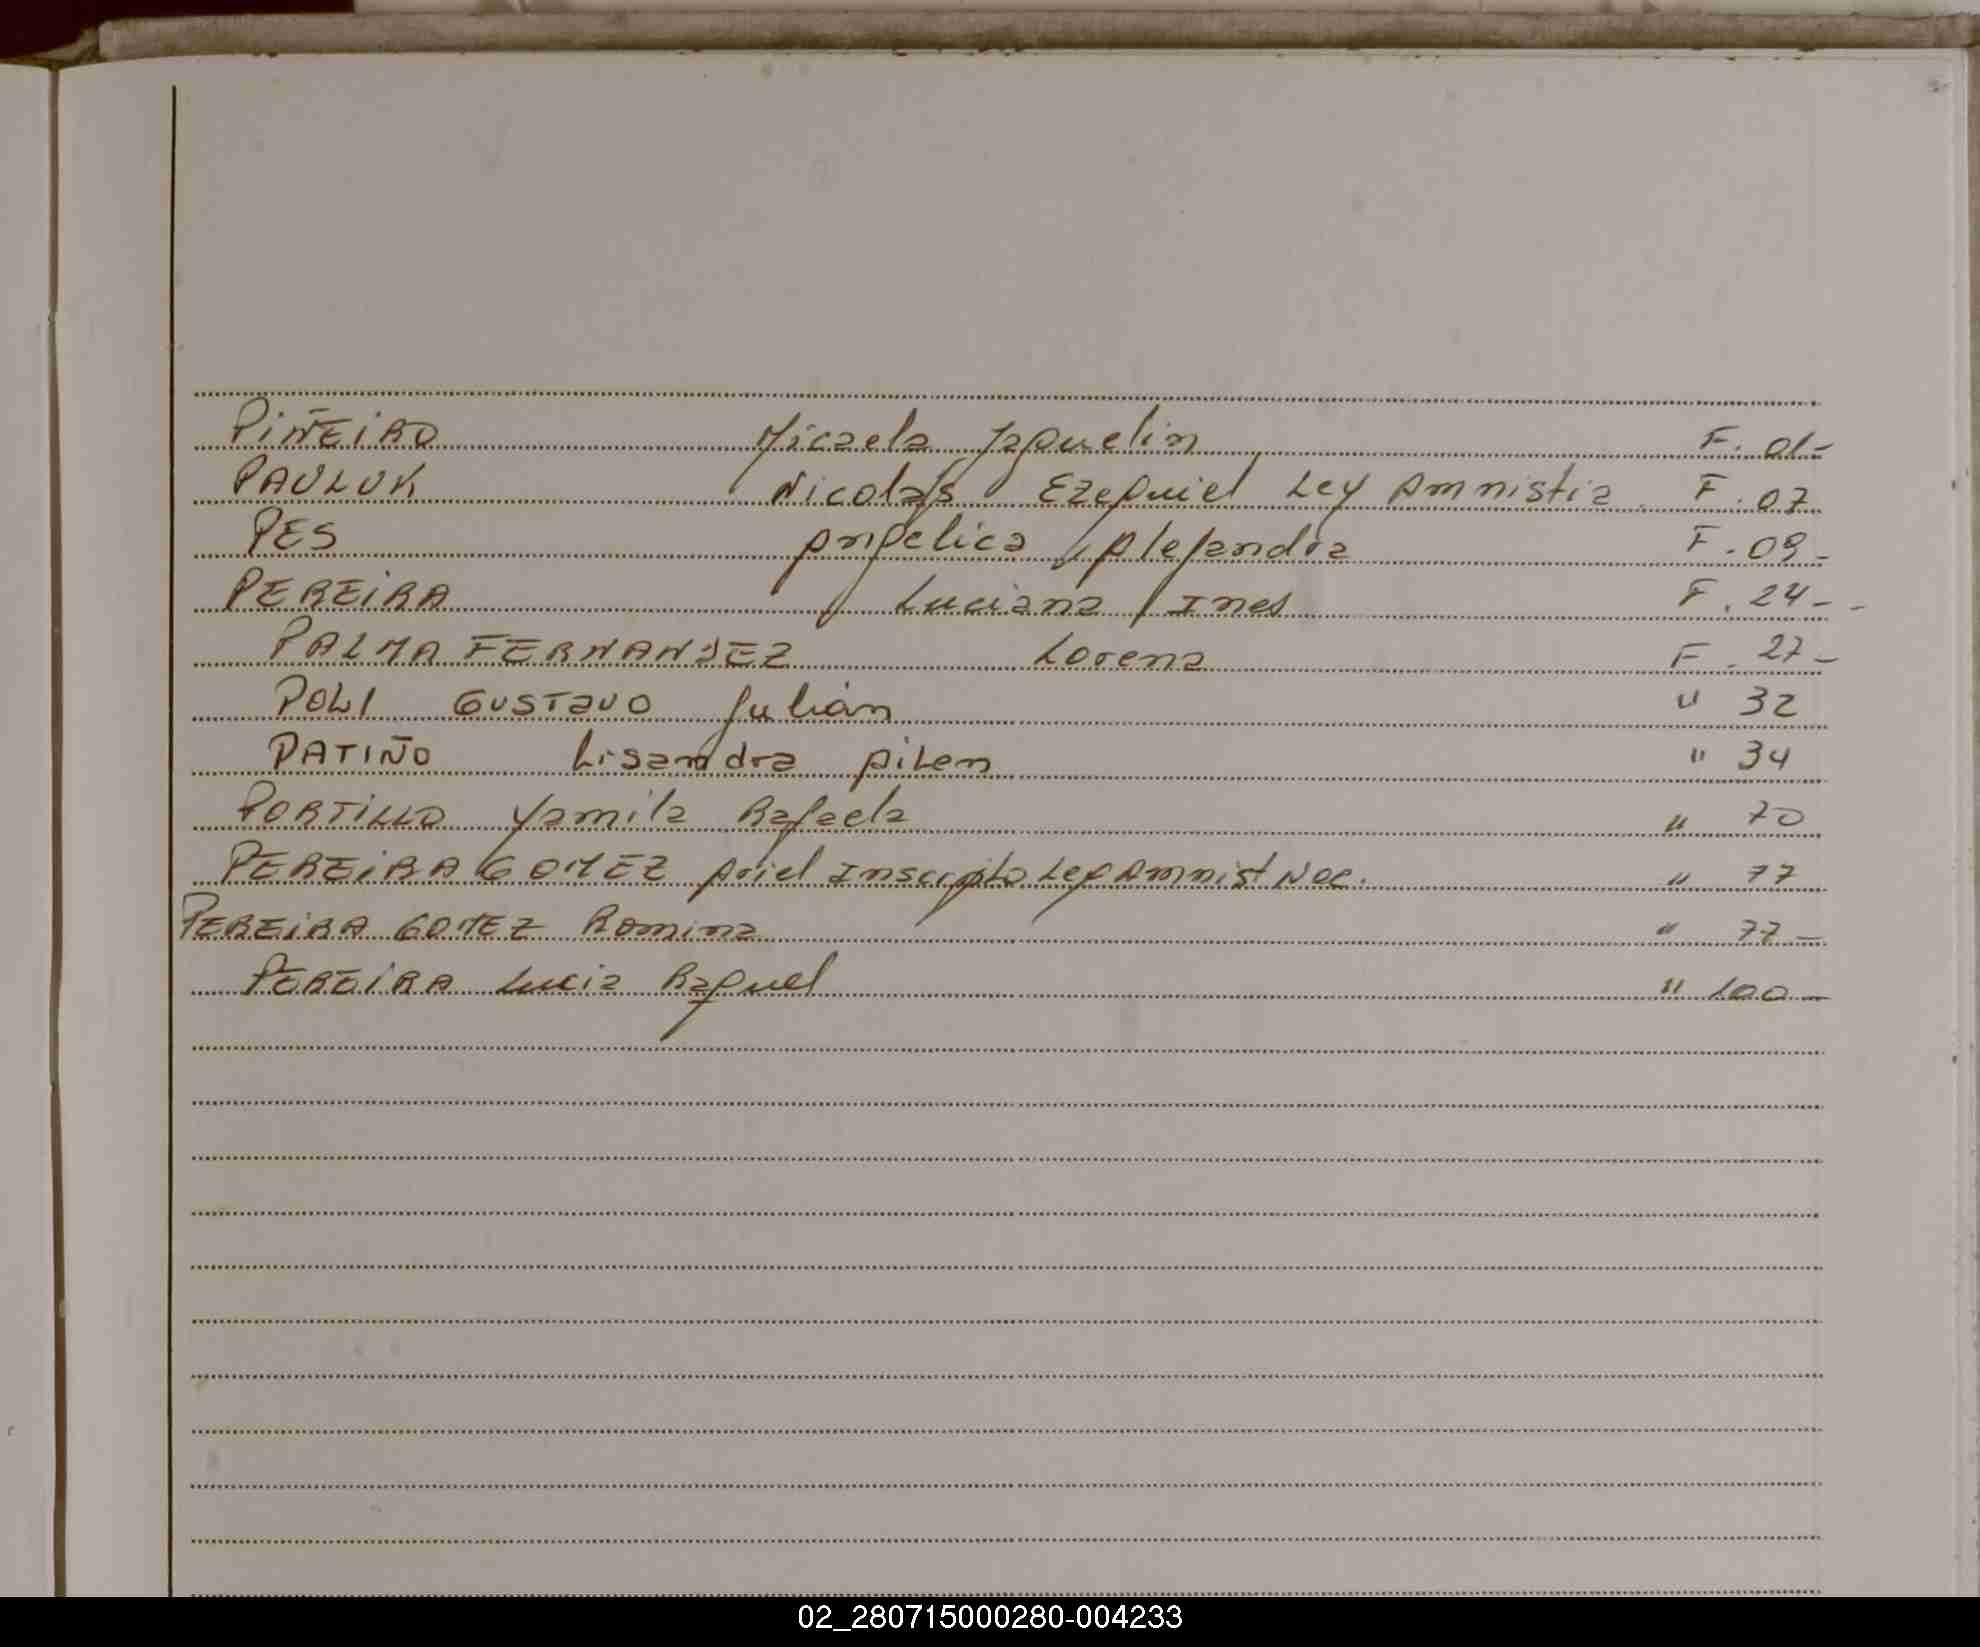 PIÑEIRO Micaela Jaquelin F. 01-
PAULUK Nicolás Ezequiel Ley Amnistia F. 07
PES Angelica Alejandra F. 09-
PEREIRA Luciana Ines F. 24--
PALMA FERNANDEZ Lorena F. 27-
POLI GUSTAVO Julián " 32
PATIÑO Lisandra Ailen " 34
PORTILLO Yamila Rafaela " 70
PEREIRA GOMEZ Ariel Inscripto Ley Amnist Nac. " 77
PEREIRA GOMEZ Romina " 77-
PEREIRA Lucia Raquel " 100-
02_280715000280-004233